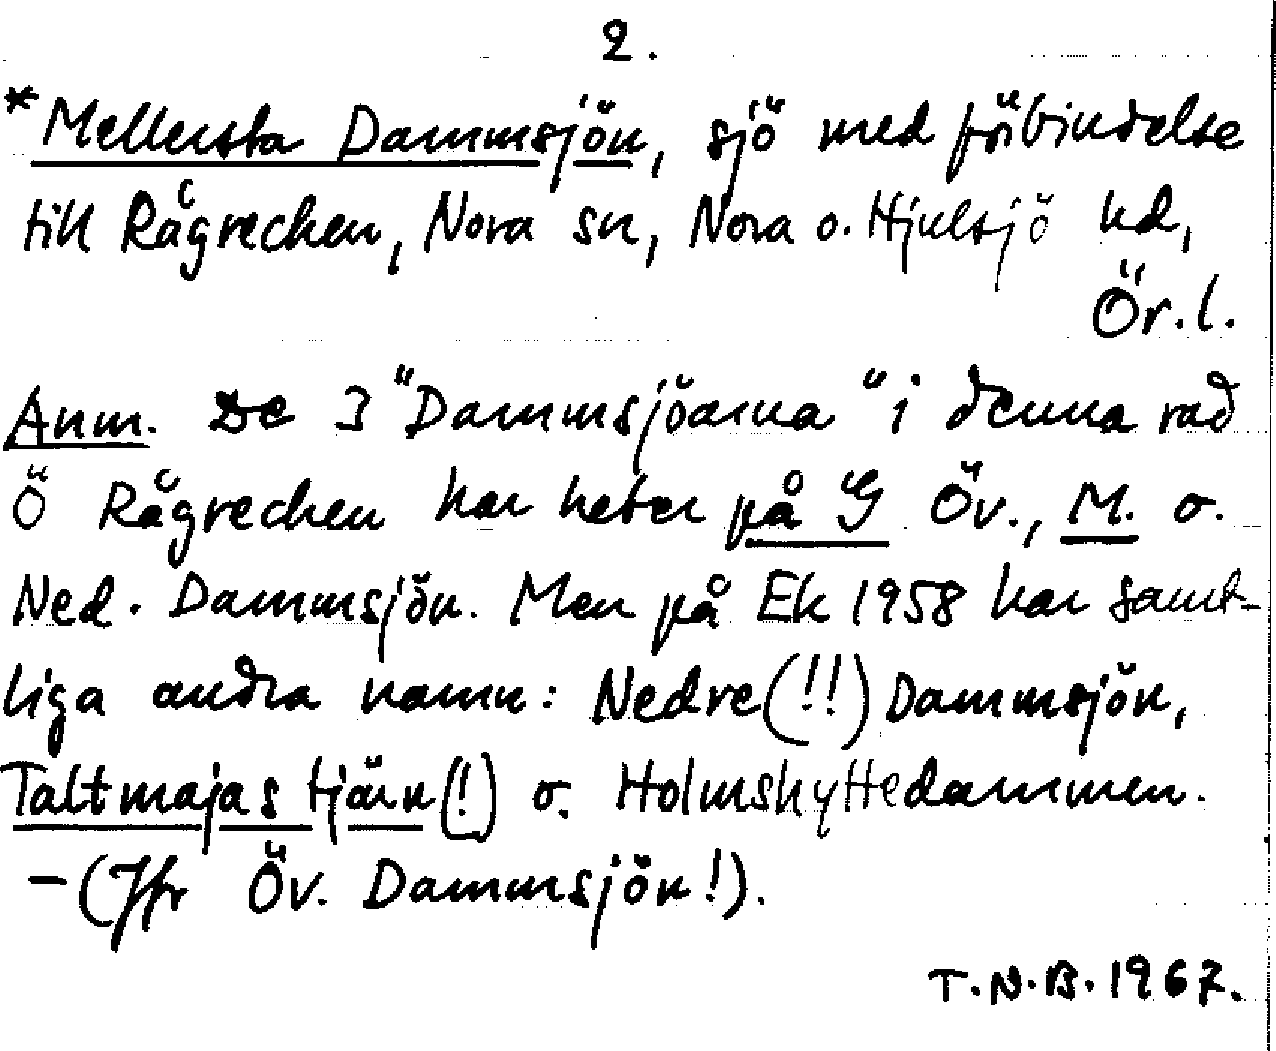 2.
*Mellersta Dammsjön, sjö med förbindelse
till Rågrecken, Nora sn, Nora o. Hjulsjö hd,
Ör.l.
Anm. De 3 "Dammsjöarna" i denna rad
Ö Rågrecken har heter på G Öv., M. o.
Ned. Dammsjön. Men på Ek 1958 har samt-
liga andra namn: Nedre(!!) Dammsjön,
Taltmajas tjärn(!) o. Holmshyttedammen.
-(Jfr Öv. Dammsjön!).
T.N.B.1967.